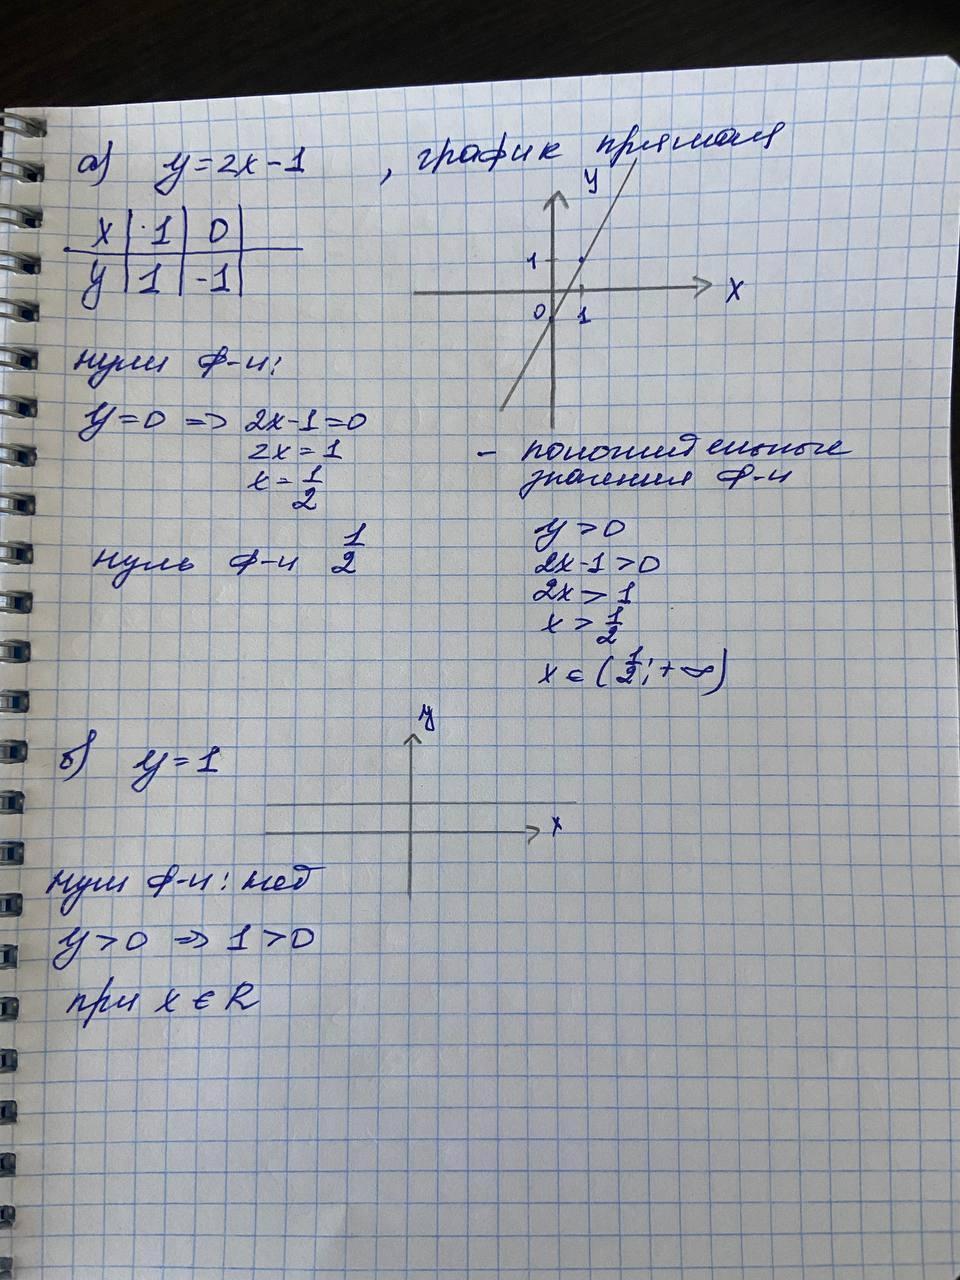 а) y = 2x - 1 , график прямая
x | 1 | 0 |
y | 1 | -1 |
y
1
0 1
x
нули ф-и:
y = 0 => 2x - 1 = 0
2x = 1
x = 1/2
нуль ф-и 1/2
- положительные
значения ф-и
y > 0
2x - 1 > 0
2x > 1
x > 1/2
x ∈ (1/2; + ∞)
б) y = 1
y
x
нули ф-и: нет
y > 0 => 1 > 0
при x ∈ R